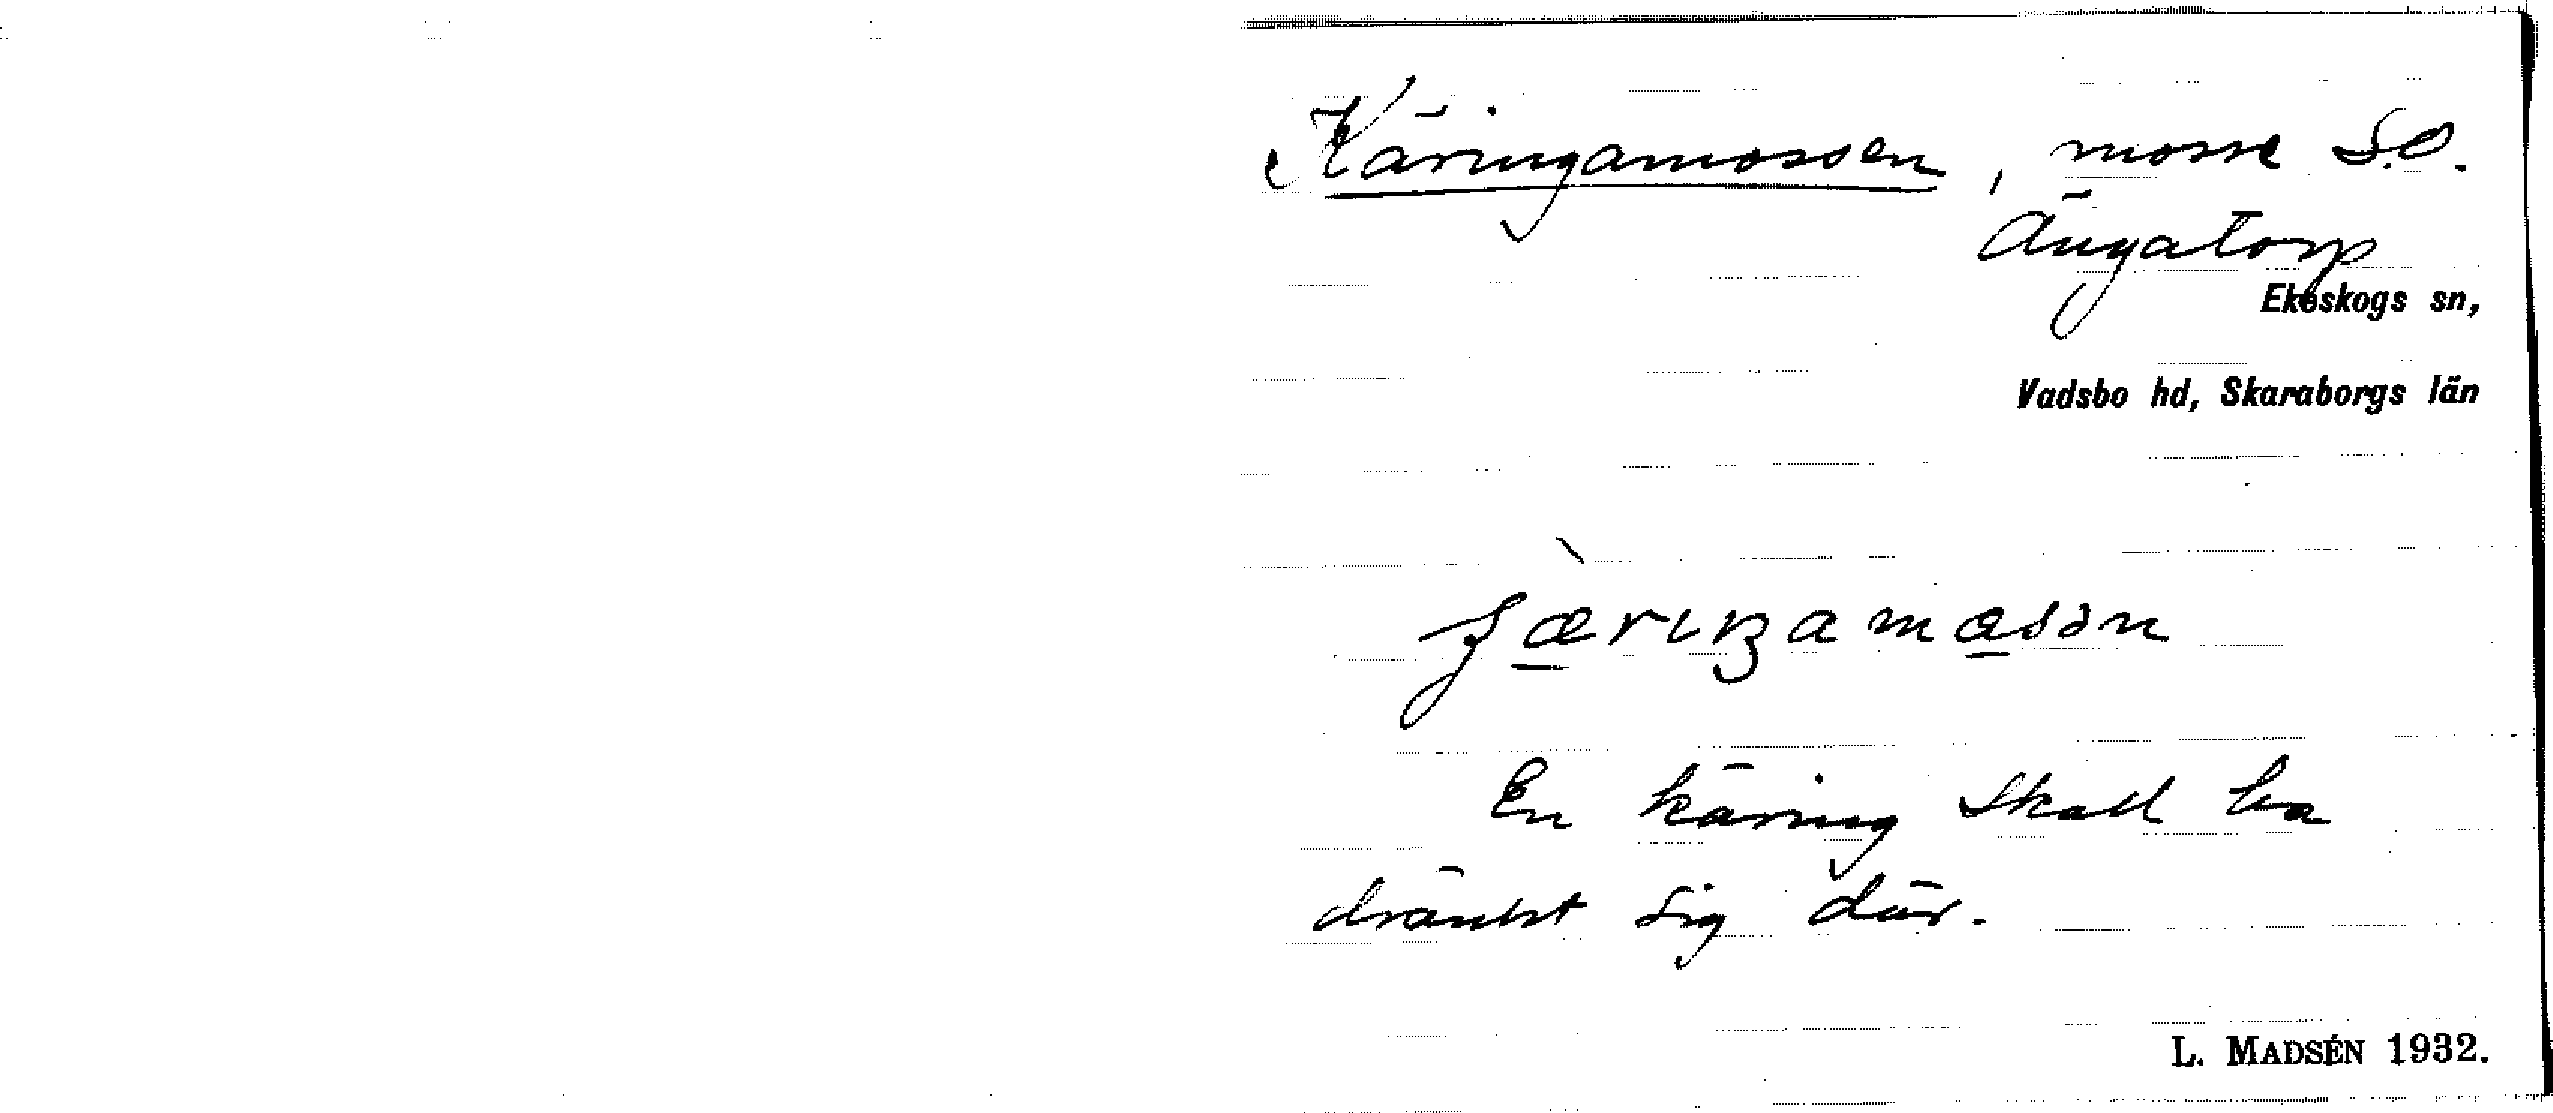 Käringamossen, mosse S.O.
Ängatorp
Ekeskogs sn,
Vadsbo hd, Skaraborgs län
En käring skall ha
dränkt sig där.
L. MADSÉN 1932.